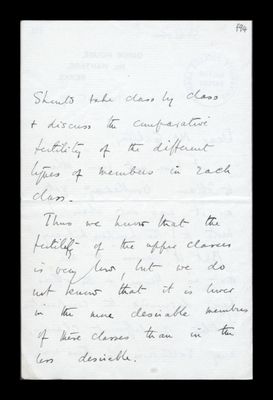 194
Should take class by class
+ discuss the comparative
fertility of the different
types of members in each
class.
Thus we know that the
fertility of the upper classes
is very low, but we do
not know that it is lower
in the more desirable members
of these classes than in the
less desirable.